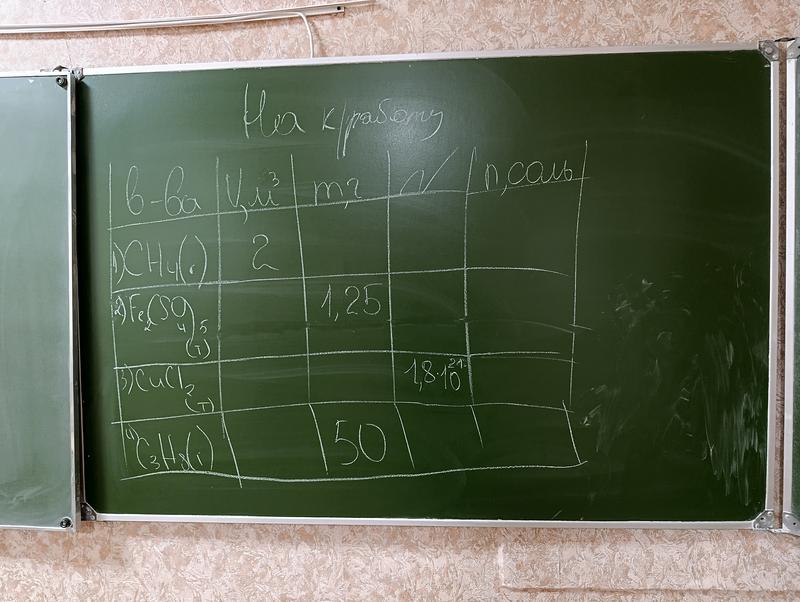 На к/работу
в-ва V,м³ m,г N n,соль
1) CH4(г) 2
2) Fe2(SO4)5 (т) 1,25
3) CuCl2 (т) 1,8·10²¹
4) C3H8(г) 50